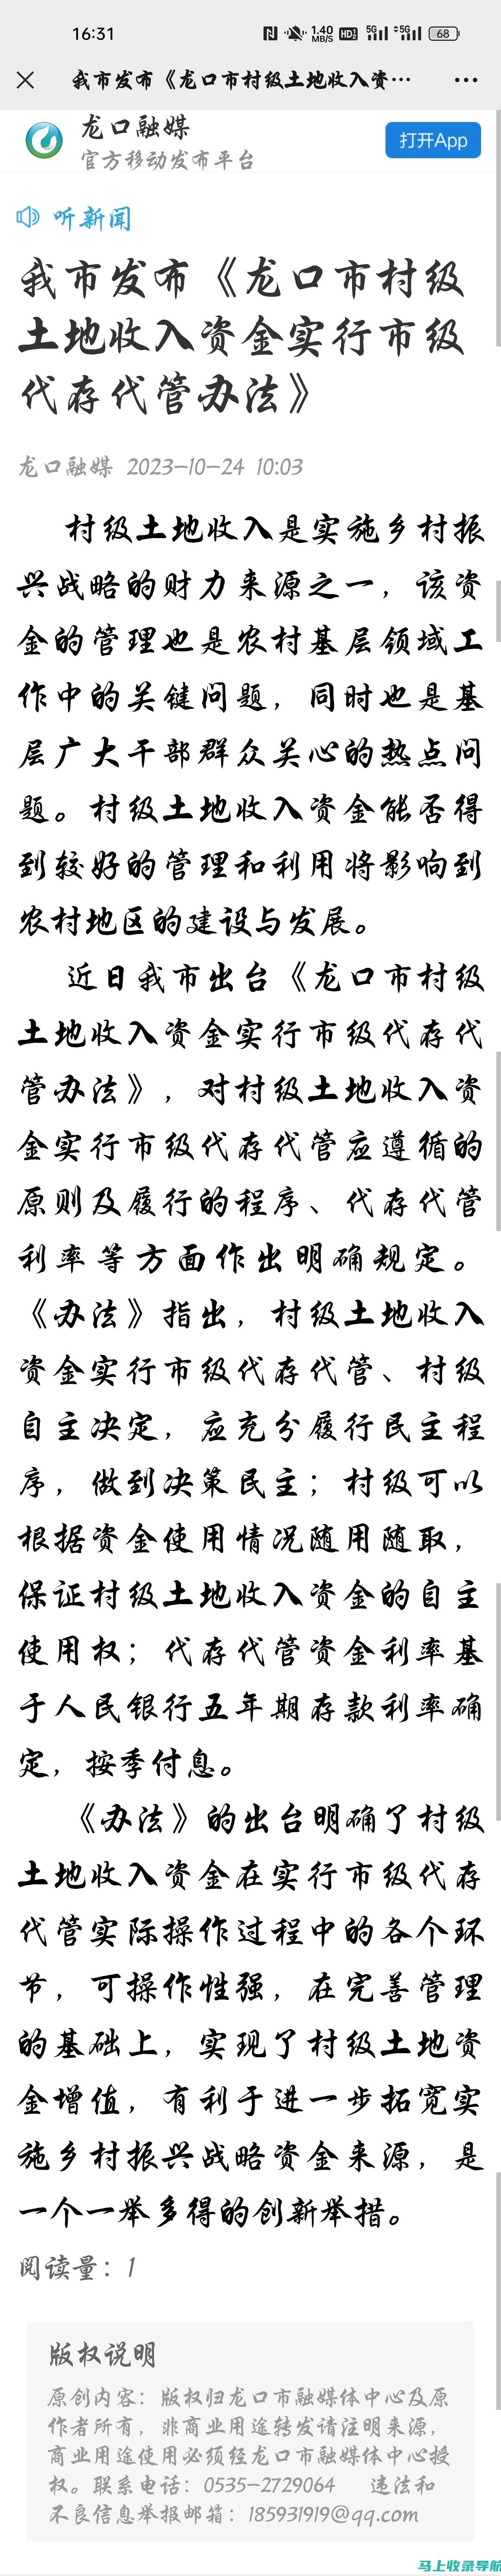 16:31
1.40 MB/S HD 5G 5G 68
我市发布《龙口市村级土地收入资…
龙口融媒
官方移动发布平台
打开App
听新闻
我市发布《龙口市村级
土地收入资金实行市级
代存代管办法》
龙口融媒 2023-10-24 10:03
村级土地收入是实施乡村振
兴战略的财力来源之一，该资
金的管理也是农村基层领域工
作中的关键问题，同时也是基
层广大干部群众关心的热点问
题。村级土地收入资金能否得
到较好的管理和利用将影响到
农村地区的建设与发展。
近日我市出台《龙口市村级
土地收入资金实行市级代存代
管办法》，对村级土地收入资
金实行市级代存代管应遵循的
原则及履行的程序、代存代管
利率等方面作出明确规定。
《办法》指出，村级土地收入
资金实行市级代存代管、村级
自主决定，应充分履行民主程
序，做到决策民主；村级可以
根据资金使用情况随用随取，
保证村级土地收入资金的自主
使用权；代存代管资金利率基
于人民银行五年期存款利率确
定，按季付息。
《办法》的出台明确了村级
土地收入资金在实行市级代存
代管实际操作过程中的各个环
节，可操作性强，在完善管理
的基础上，实现了村级土地资
金增值，有利于进一步拓宽实
施乡村振兴战略资金来源，是
一个一举多得的创新举措。
阅读量：1
版权说明
原创内容：版权归龙口市融媒体中心及原
作者所有，非商业用途转发请注明来源，
商业用途使用必须经龙口市融媒体中心授
权。联系电话：0535-2729064 违法和
不良信息举报邮箱：185931919@qq.com
马上收录导航